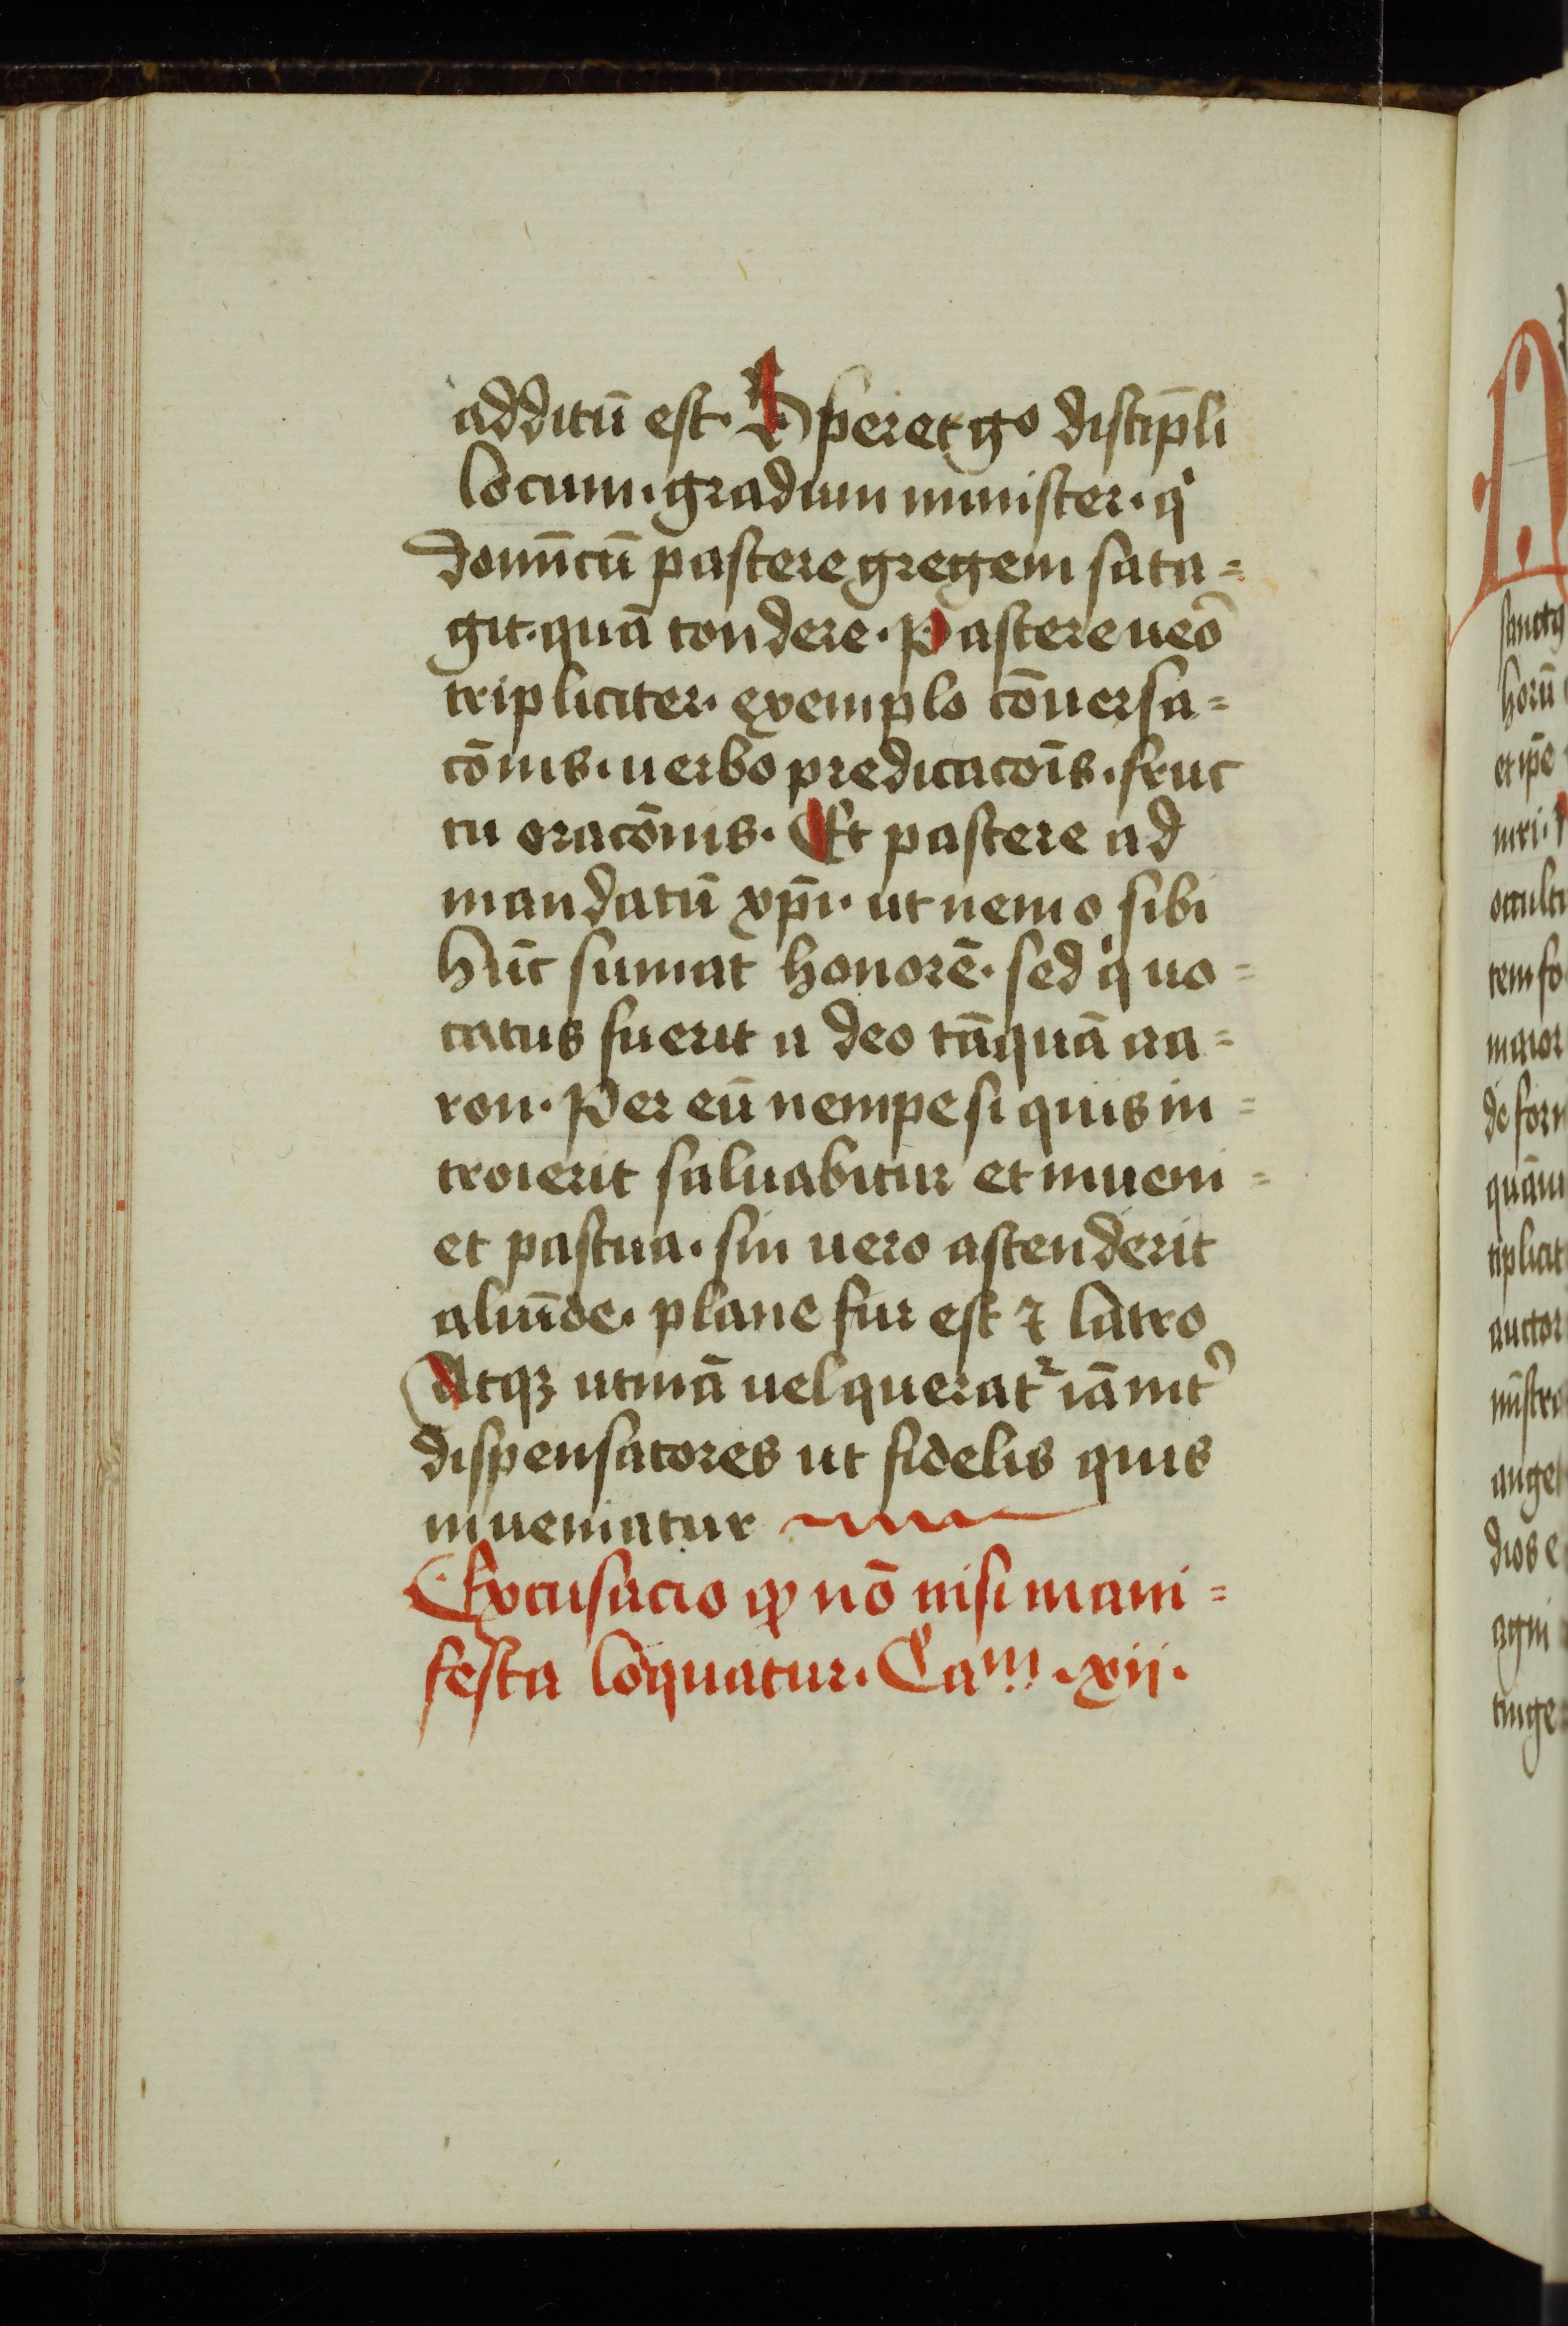 additū est. Speret gͦ discip̄li
locum. gradum minister. qͥ
domīcū pascere gregem sata=
git. quā tondere. Pascere ueō
tripliciter. exemplo cōuersa=
cōnis. uerbo predicacoīs. fruc
tu oracōnis. Et pascere ad
mandatū xp̄i. ut nemo sibi
hūc sumat honorē. sed qͥ uo=
catus fuerit a deo tāquā aa=
ron. Per eū nempe si quis in=
troierit saluabitur et inueni=
et pascua. sin uero ascenderit
aliūde. plane fur est ⁊ latro
Atqꝫ utinā uel querat᷑ iā int᾽
dispensatores ut fidelis quis
inueniatur
Excusacio ꝙ nō nisi mani=
festa loquatur. Caᵐ .xij.
sanctꝰ
horū
et ip̄e
mri.
occulta
tem so
maior
de for
quām
tiplicit
auctor
mistro
angel
dios e
agni
tinge